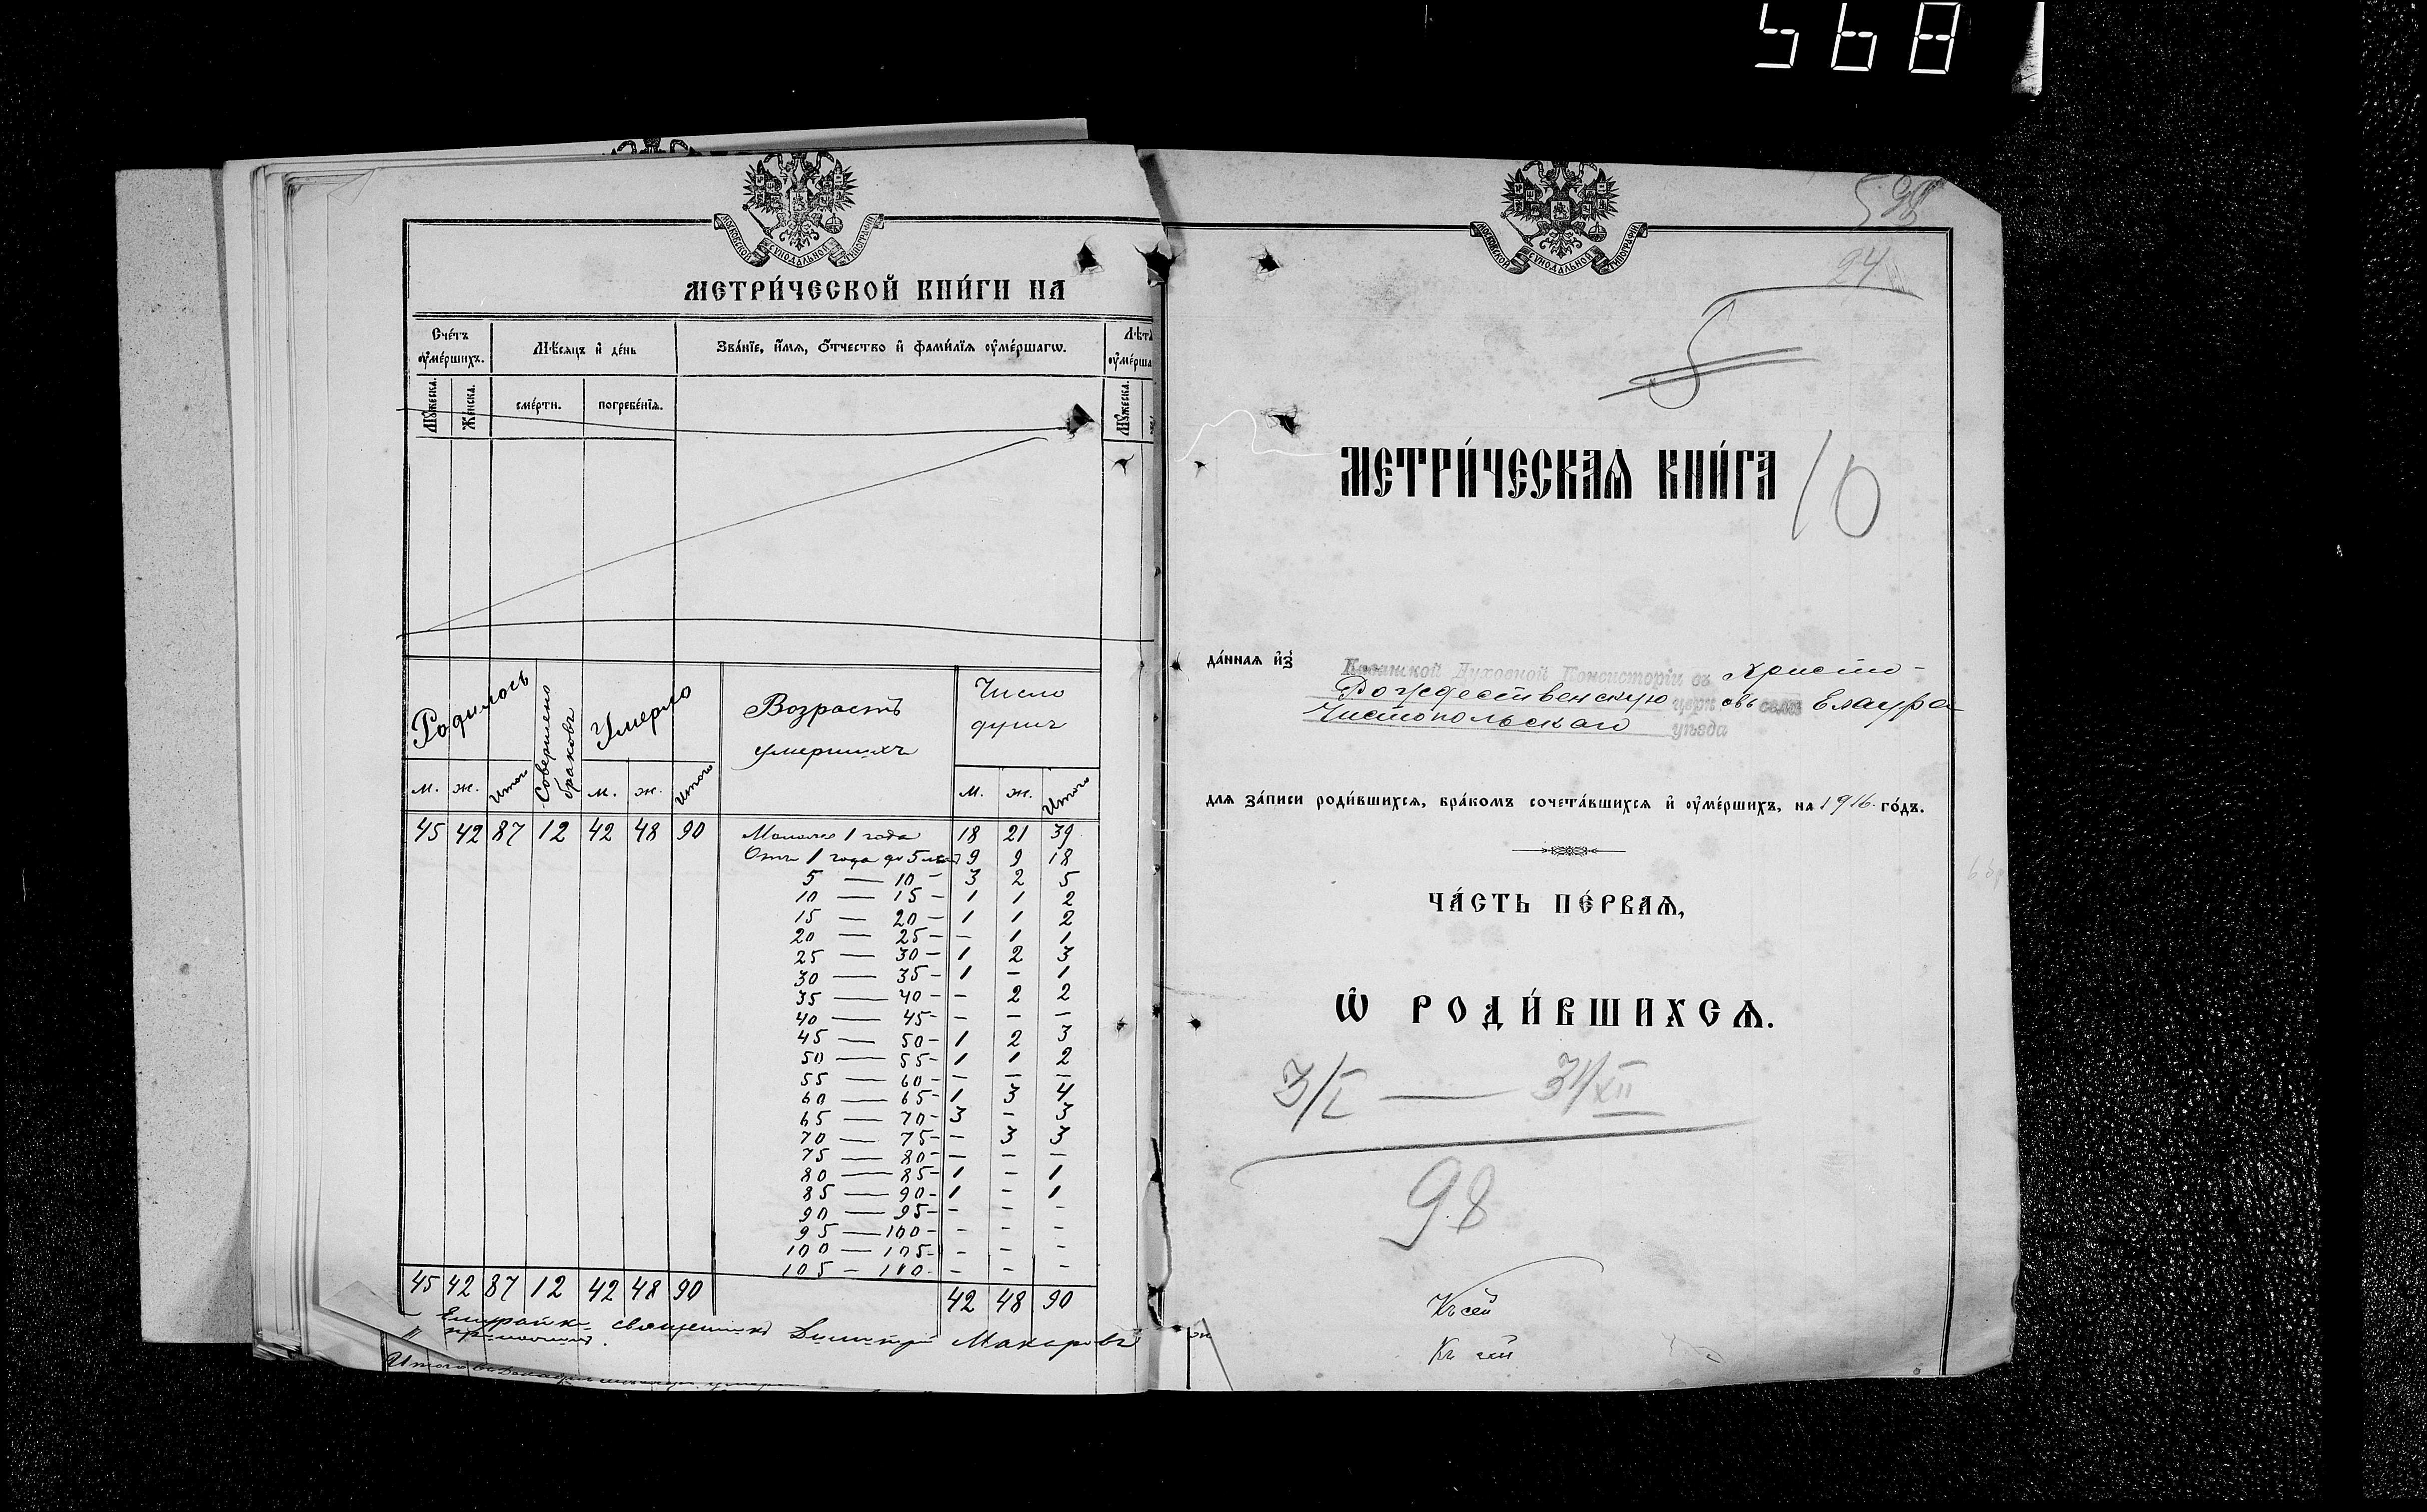 568
МОСКОВСКОЙ СУНОДАЛЬНОЙ ТИПОГРАФІИ
МЕТРИ́ЧЕСКОЙ КНИ́ГИ НА
Сче́тъ оу҆ме́ршихъ.
Мѣ́сяцъ и҆ де́нь
Зва́нїе, и҆́мѧ, ѻ҆́тчество и҆ фами́лїѧ оу҆ме́ршагѡ.
Лѣта
оу҆ме́рша
Мꙋ́жеска.
Же́нска.
сме́рти.
погребе́нїѧ.
Мꙋ́жеска.
Родилось
Совершено браковъ
Умерло
Возрастъ умершихъ
Число душъ
м. ж. Итого м. ж. Итого м. ж. Итого
45 42 87 12 42 48 90 Моложе 1 года 18 21 39
Отъ 1 года до 5 лѣтъ 9 9 18
5 — 10 - 3 2 5
10 — 15 - 1 1 2
15 — 20 - 1 1 2
20 — 25 - - 1 1
25 — 30 - 1 2 3
30 — 35 - 1 - 1
35 — 40 - - 2 2
40 — 45 - - - -
45 — 50 - 1 2 3
50 — 55 - 1 1 2
55 — 60 - - - -
60 — 65 - 1 3 4
65 — 70 - 3 - 3
70 — 75 - - 3 3
75 — 80 - - - -
80 — 85 - 1 - 1
85 — 90 - 1 - 1
90 — 95 - - - -
95 — 100 - - - -
100 — 105 - - - -
105 — 110 - - - -
45 42 87 12 42 48 90 42 48 90
священникъ Димитрій Макаровъ
МОСКОВСКОЙ СУНОДАЛЬНОЙ ТИПОГРАФІИ
598
24
5
МЕТРИ́ЧЕСКАѦ КНИ́ГА 10
да́нная и҆з̾ Казанской Духовной Консисторіи въ Христо-
Рождественскую церковь села Елаура
Чистопольскаго уѣзда
для за́писи роди́вшихсѧ, бра́комъ сочета́вшихсѧ и҆ оу҆ме́ршихъ, на 1916 го́дъ.
ЧА́СТЬ ПЕ́РВАѦ,
Ѡ҆ РОДИ́ВШИХСѦ.
3/I — 31/XII
98
Къ сей
Къ сей